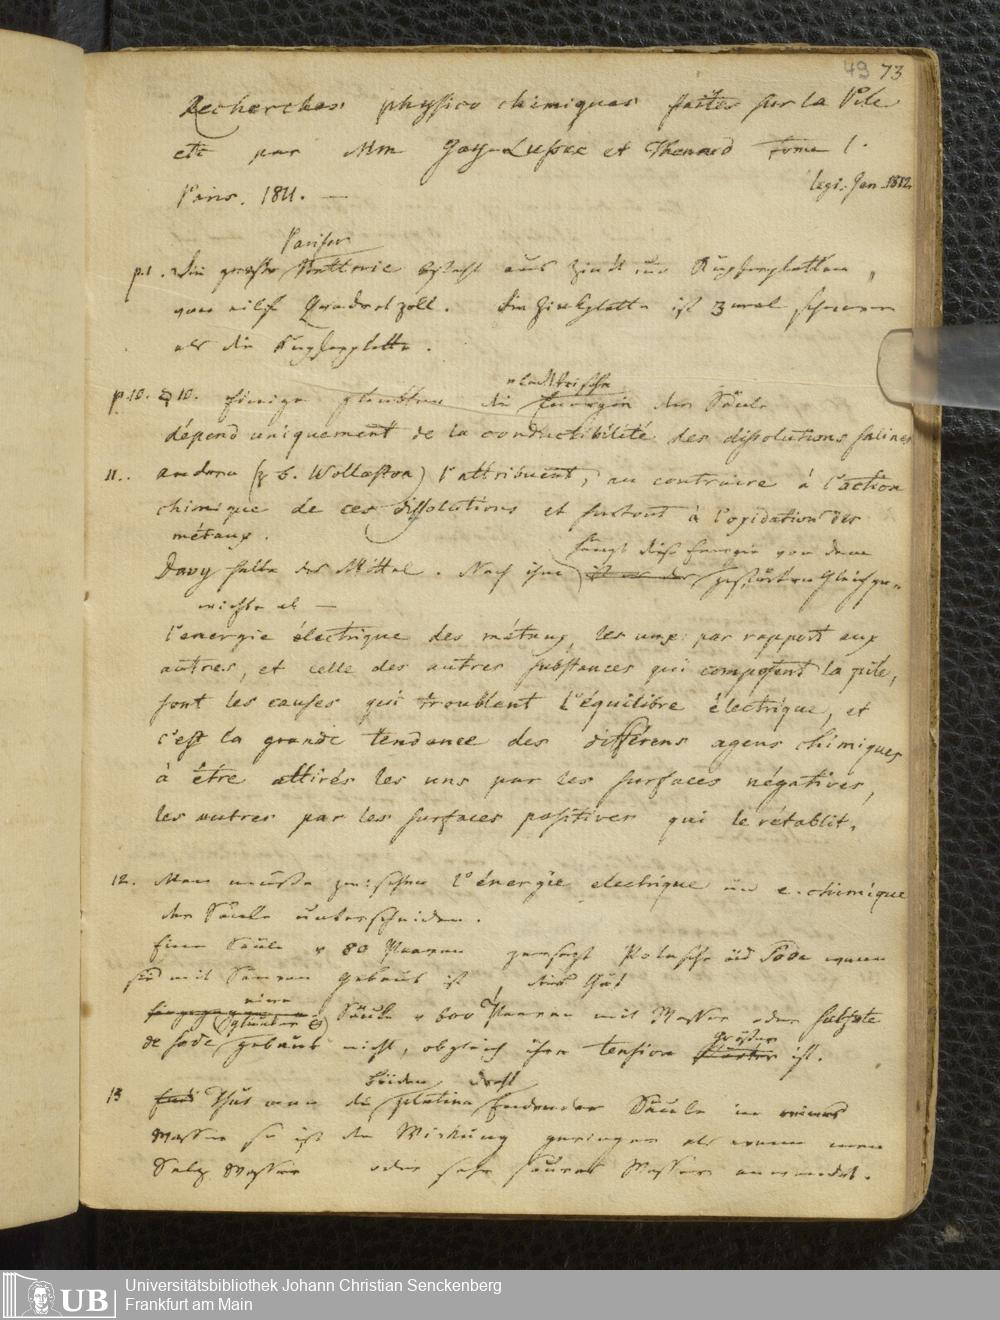 49 73
Recherches physico chimiques faites sur la Pile
etc par Mm Gay-Lussac et Thenard Tome 1.
legi. Jan. 1812.
Paris. 1811. —
Pariser
p.1. Die große Batterie besteht aus Zink und Kupferplatten
von eilf Quadratzoll. Die Zinkplatte ist 3 mal schwerer
als die Kupferplatte.
electrische
p.10. 10. Einige glaubten die Energie der Säule
dépend uniquement de la conductibilité des dissolutions salines
11.. andere (z b. Wollaston) l'attribuent, au contraire à l'action
chimique de ces dissolutions et surtout à l'oxidation des
métaux.
hängt diese Energie von dem
Davy halte das Mittel. Nach ihm gestörten Gleichge-
wichte ab —
l'energie électrique des métaux, les uns par rapport aux
autres, et celle des autres substances qui composent la pile,
sont les causes qui troublent l'équilibre électrique, et
c'est la grande tendance des différens agens chimiques
à être attirés les uns par les surfaces négatives,
les autres par les surfaces positives qui le rétablit.
12. Man müsse zwischen l'énergie electrique und e. chimique
der Säule unterscheiden.
Eine Säule v 80 Paaren zersezt Potasche und Soda wenn
sie mit Säuren gebaut ist, dies thut
eine
Säule v 600 Paaren mit Wasser oder sulfate
de soude gebaut nicht, obgleich ihre tension größer ist.
beiden draht
13 Thut man die platina Enden der Säule in reines
Wasser so ist die Wirkung geringer als wenn man
Salz Wasser oder sehr saures Wasser anwendet.
UB
Universitätsbibliothek Johann Christian Senckenberg
Frankfurt am Main